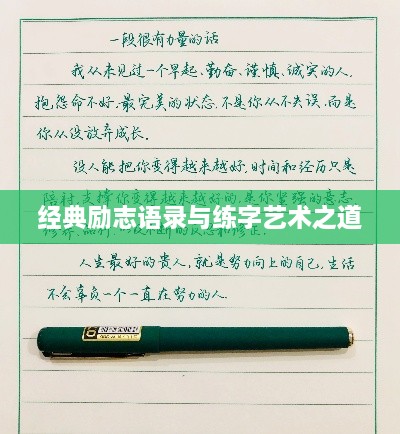 一段很有力量的话
我从未见过一个早起、勤奋、谨慎、诚实的人,
抱怨命不好.最完美的状态.不是你从不失误.而是
你从没放弃成长.
没人能把你变得越来越好.时间和经历只是
陪衬.支撑你变得越来越好的.是你坚强的意志
经典励志语录与练字艺术之道
人生最好的贵人,就是努力向上的自己.生活
不会辜负一个一直在努力的人.